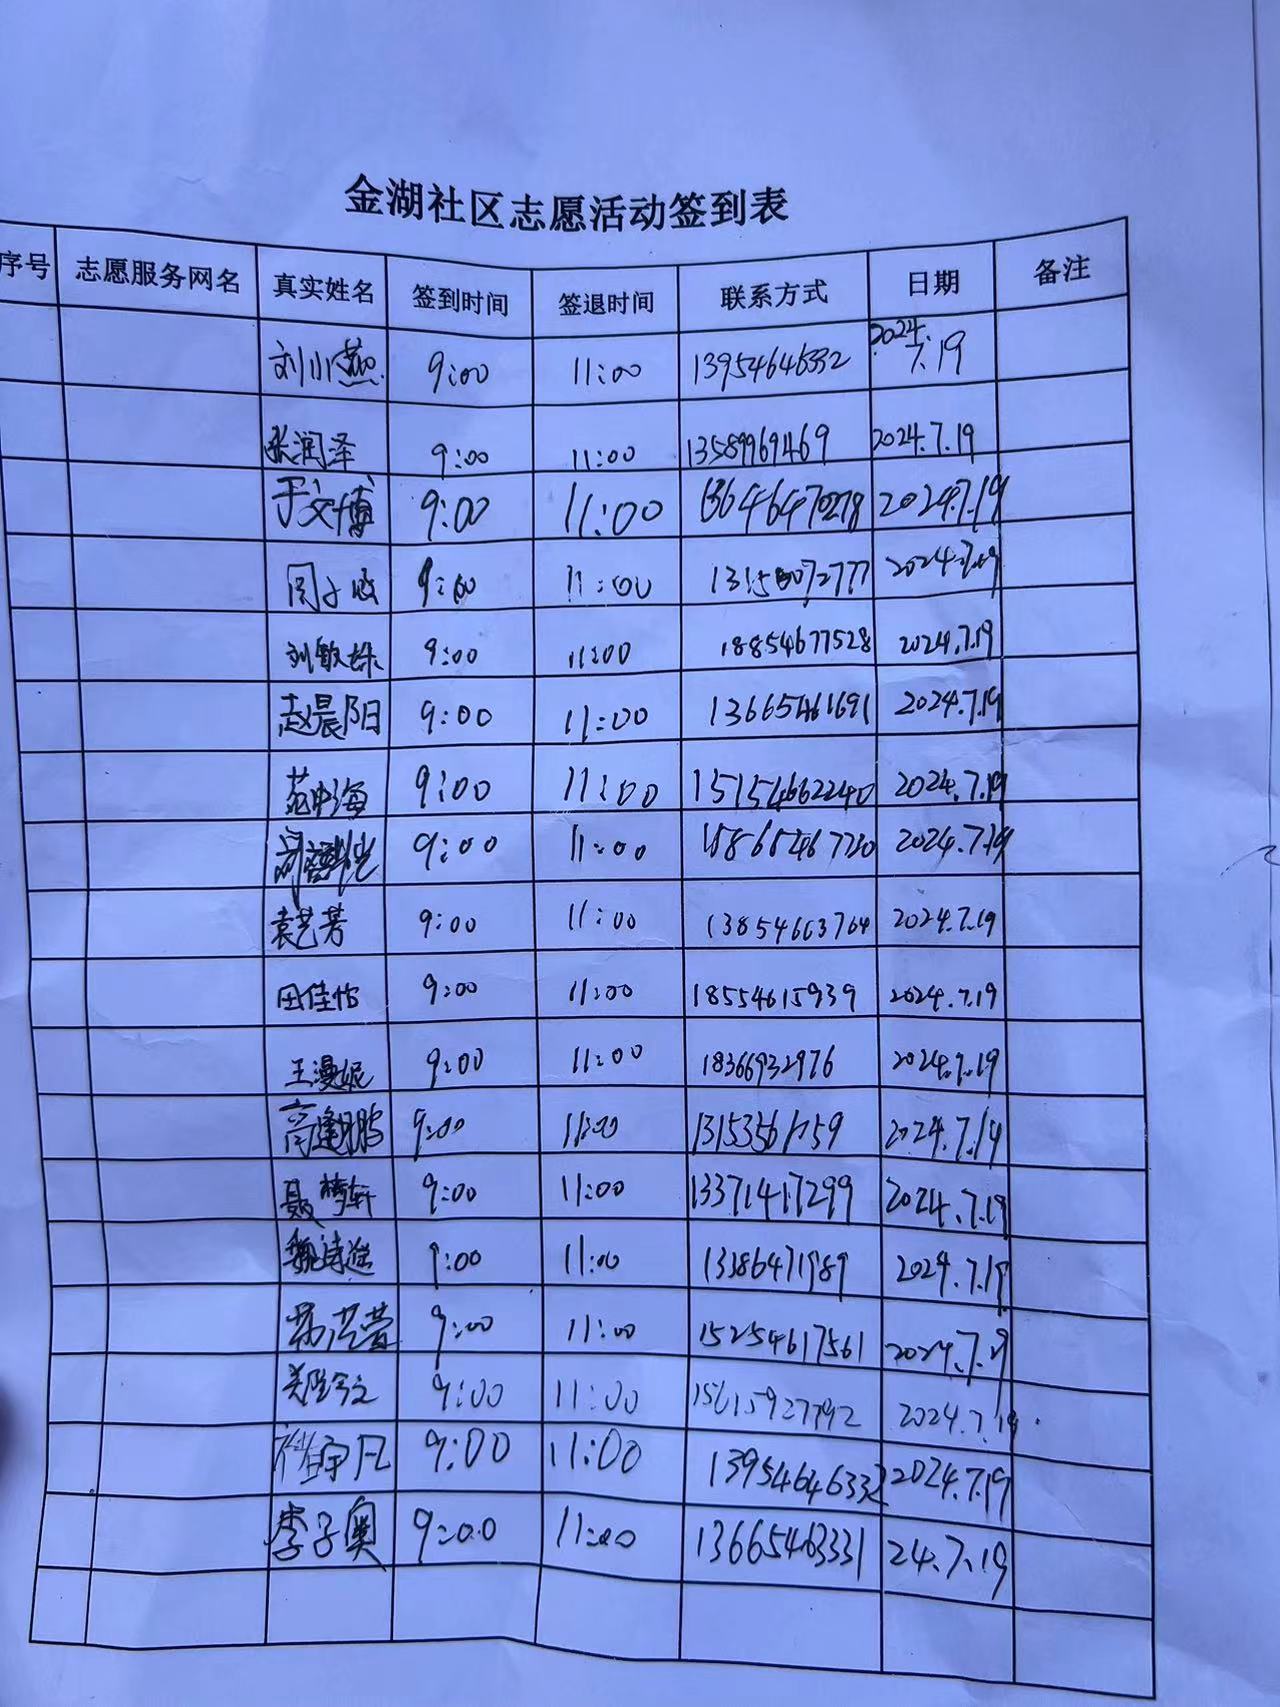 金湖社区志愿活动签到表
序号 志愿服务网名 真实姓名 签到时间 签退时间 联系方式 日期 备注
刘小燕 9:00 11:00 13954646332 2024.7.19
张润泽 9:00 11:00 13589969469 2024.7.19
于文博 9:00 11:00 13646470278 2024.7.19
9:00 11:00 2024.7.19
刘敏姝 9:00 11:00 18854677528 2024.7.19
赵晨阳 9:00 11:00 13665461691 2024.7.19
范中海 9:00 11:00 15154662240 2024.7.19
9:00 11:00 2024.7.19
袁艺芳 9:00 11:00 13854663764 2024.7.19
田佳怡 9:00 11:00 18554615939 2024.7.19
王漫妮 9:00 11:00 18366932976 2024.7.19
9:00 11:00 2024.7.19
聂梦轩 9:00 11:00 13371417299 2024.7.19
9:00 11:00 2024.7.19
9:00 11:00 15254617561 2024.7.19
9:00 11:00 15615927792 2024.7.19
9:00 11:00 13954646332 2024.7.19
李子奥 9:00 11:00 13665463331 24.7.19